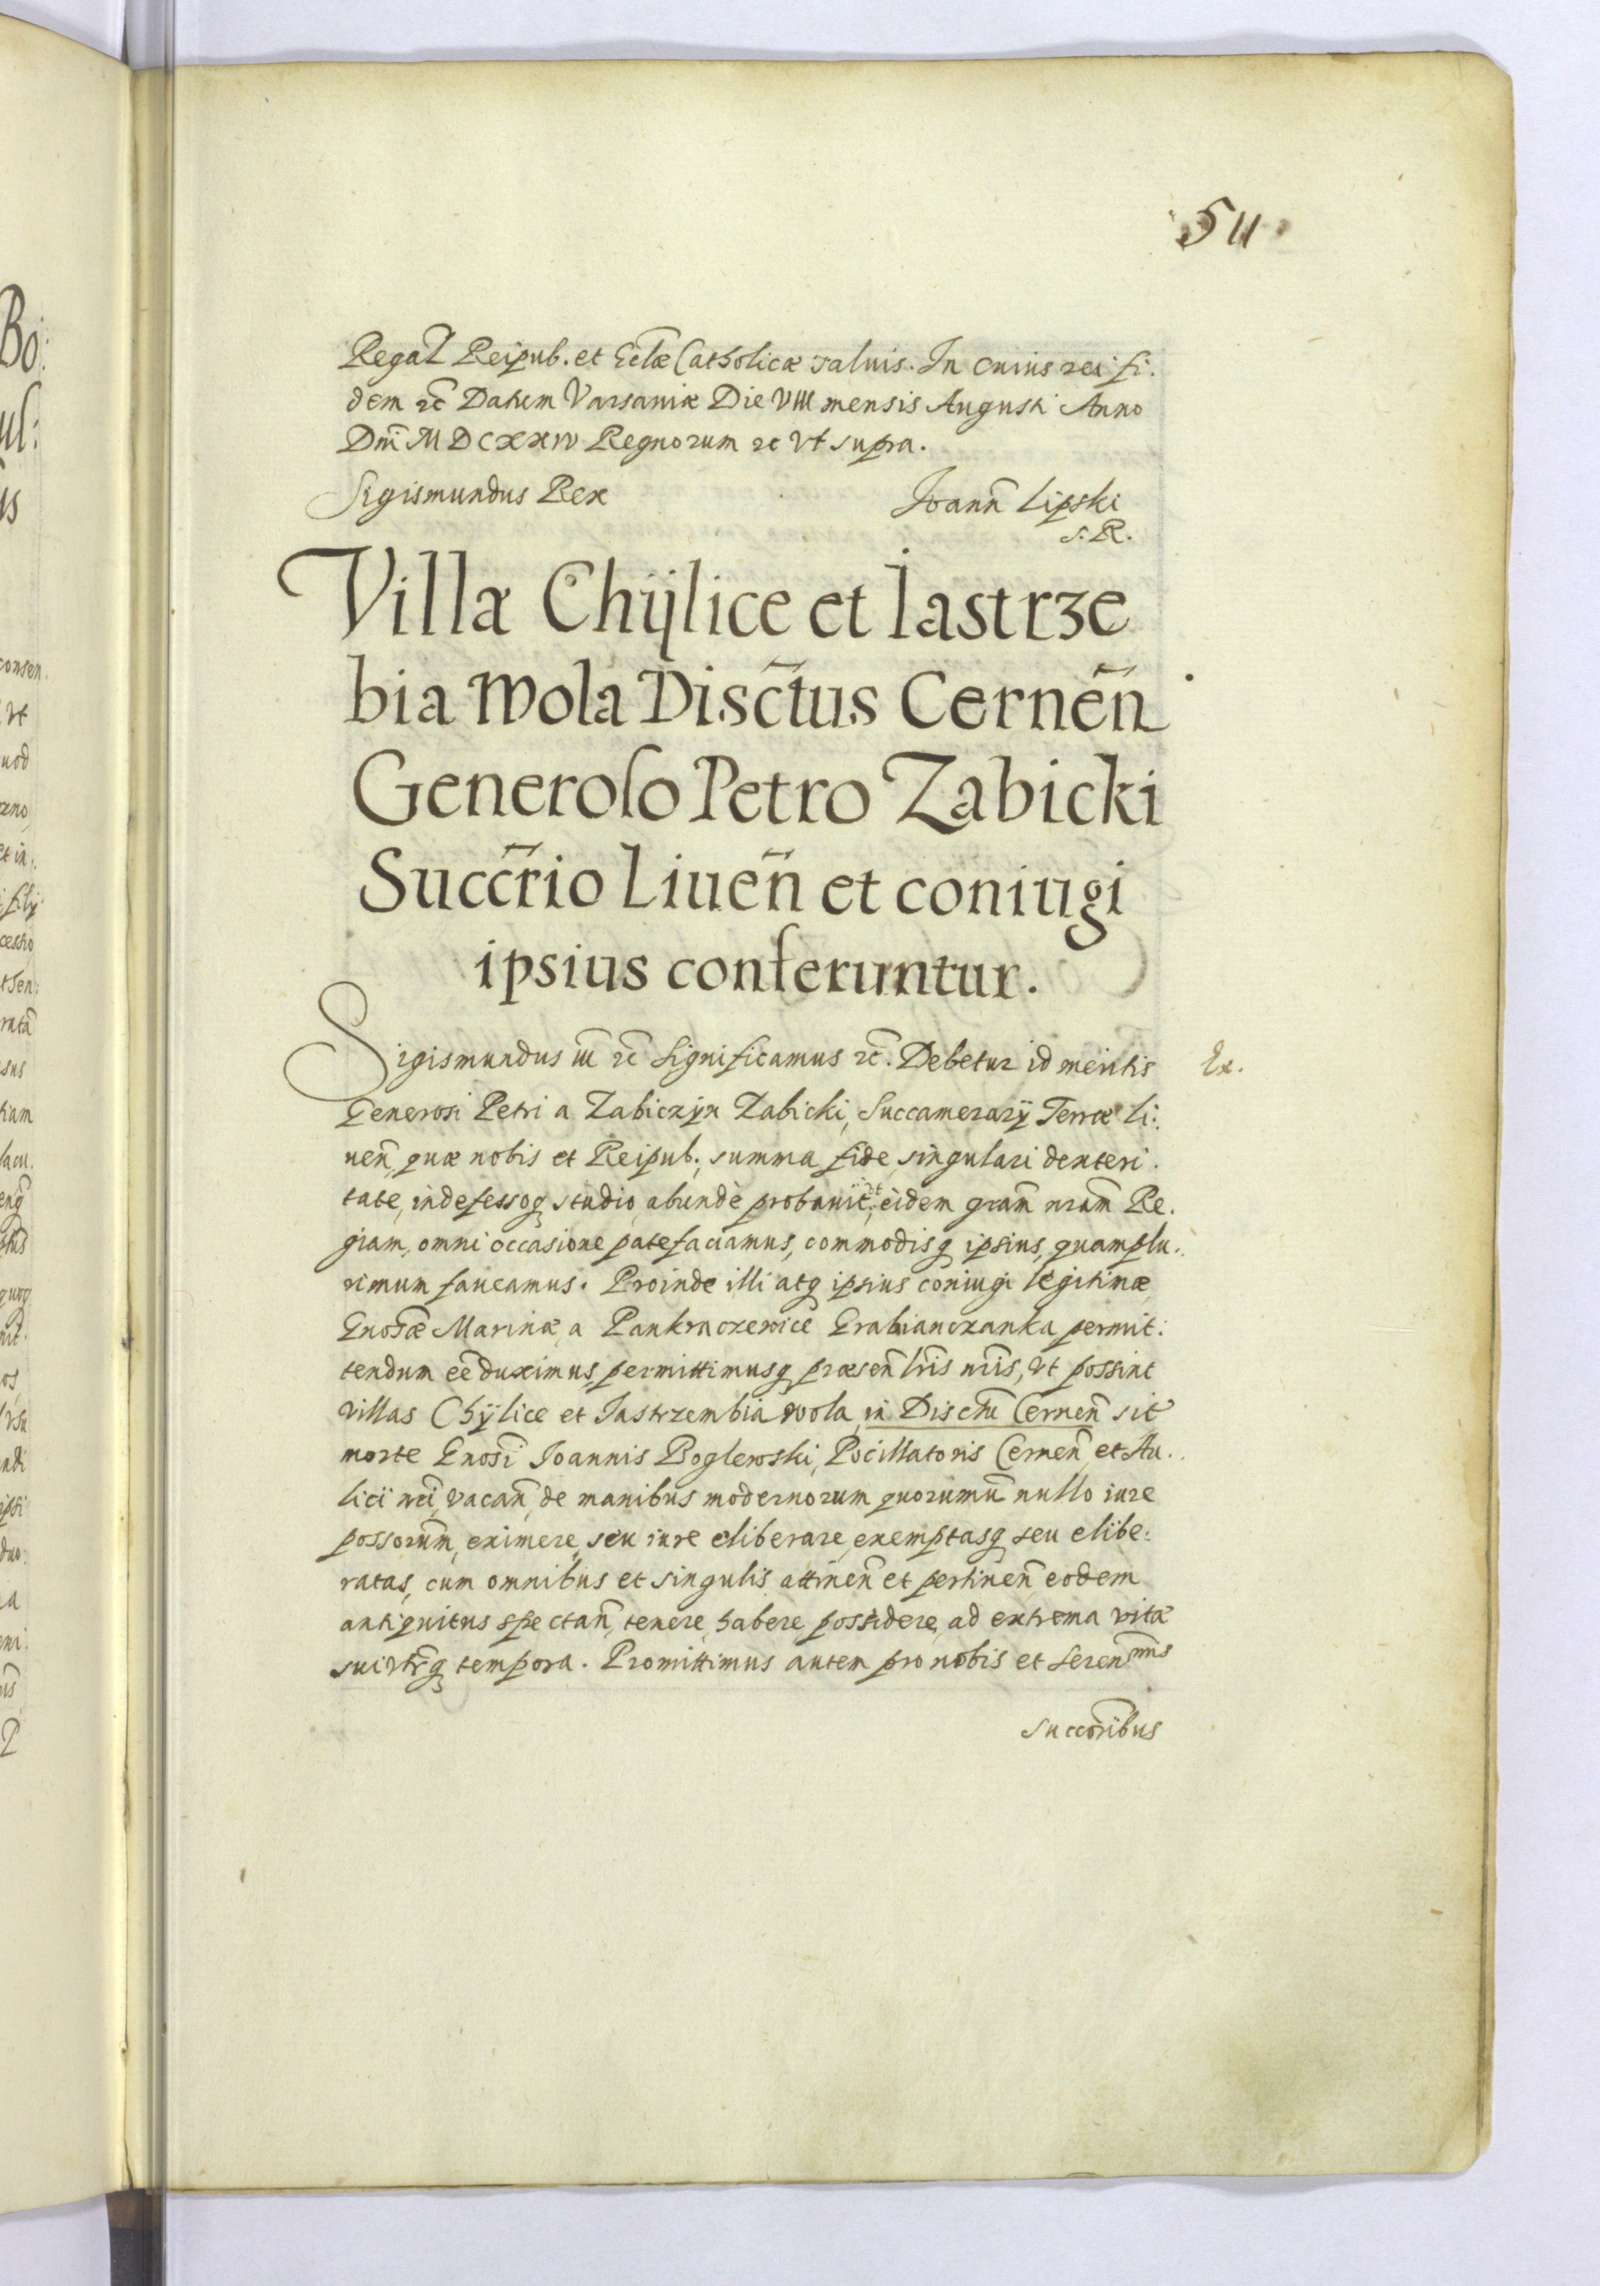 511
Regal̃ Reipub. et Eclæ Catholicæ saluis. In cuius rei fi.
dem etc̃ Datum Varsauiæ Die VIII mensis Augusti Anno
Dnĩ MDCXXIV Regnorum etc Vt supra.
Sigismundus Rex Joann̄ Lipski
S. R.
Villæ Chÿlice et Iastrze
bia Wola Disc̃tus Cerneñ
Generoso Petro Zabicki
Succr̃io Liueñ et coniugi
ipsius conferuntur.
Sigismundus III etc̃ Significamus etc̃. Debetur id meritis Ex.
Generosi Petri a Zabiczyn Zabicki, Succamerarÿ Terræ Li:
ueñ, quæ nobis et Reipub:, summa fide singulari dexteri.
tate, indefessoq studio, abundè probauit, vt eidem gram̃ nram̃ Re.
giam, omni occasione patefaciamus, commodisq ipsius, quamplu.
rimum faueamus. Proinde illi atq ipsius coniugi legitimæ
Gnosæ̃ Marinæ, a Pankraczewice Grabianczanka permit:
tendum eẽ duximus, permittimusq præseñ lr̃is nr̃is, vt possint
villas Chÿlice et Jastrzembia wola, in Disctu Cerneñ sit̃
morte Gnosĩ Joannis Boglewski, Pocillatoris Cerneñ et Au.
licii nr̃i, vacañ, de manibus modernorum quorumũ nullo iure
possorum̃, eximere, seu iure eliberare, exemptasq seu elibe:
ratas, cum omnibus et singulis attineñ et pertineñ eodem
antiquitus spectañ, tenere, habere, possidere, ad extrema vitæ
sui vtr̃q tempora. Promittimus autem pro nobis et Seren^mis
succõribus